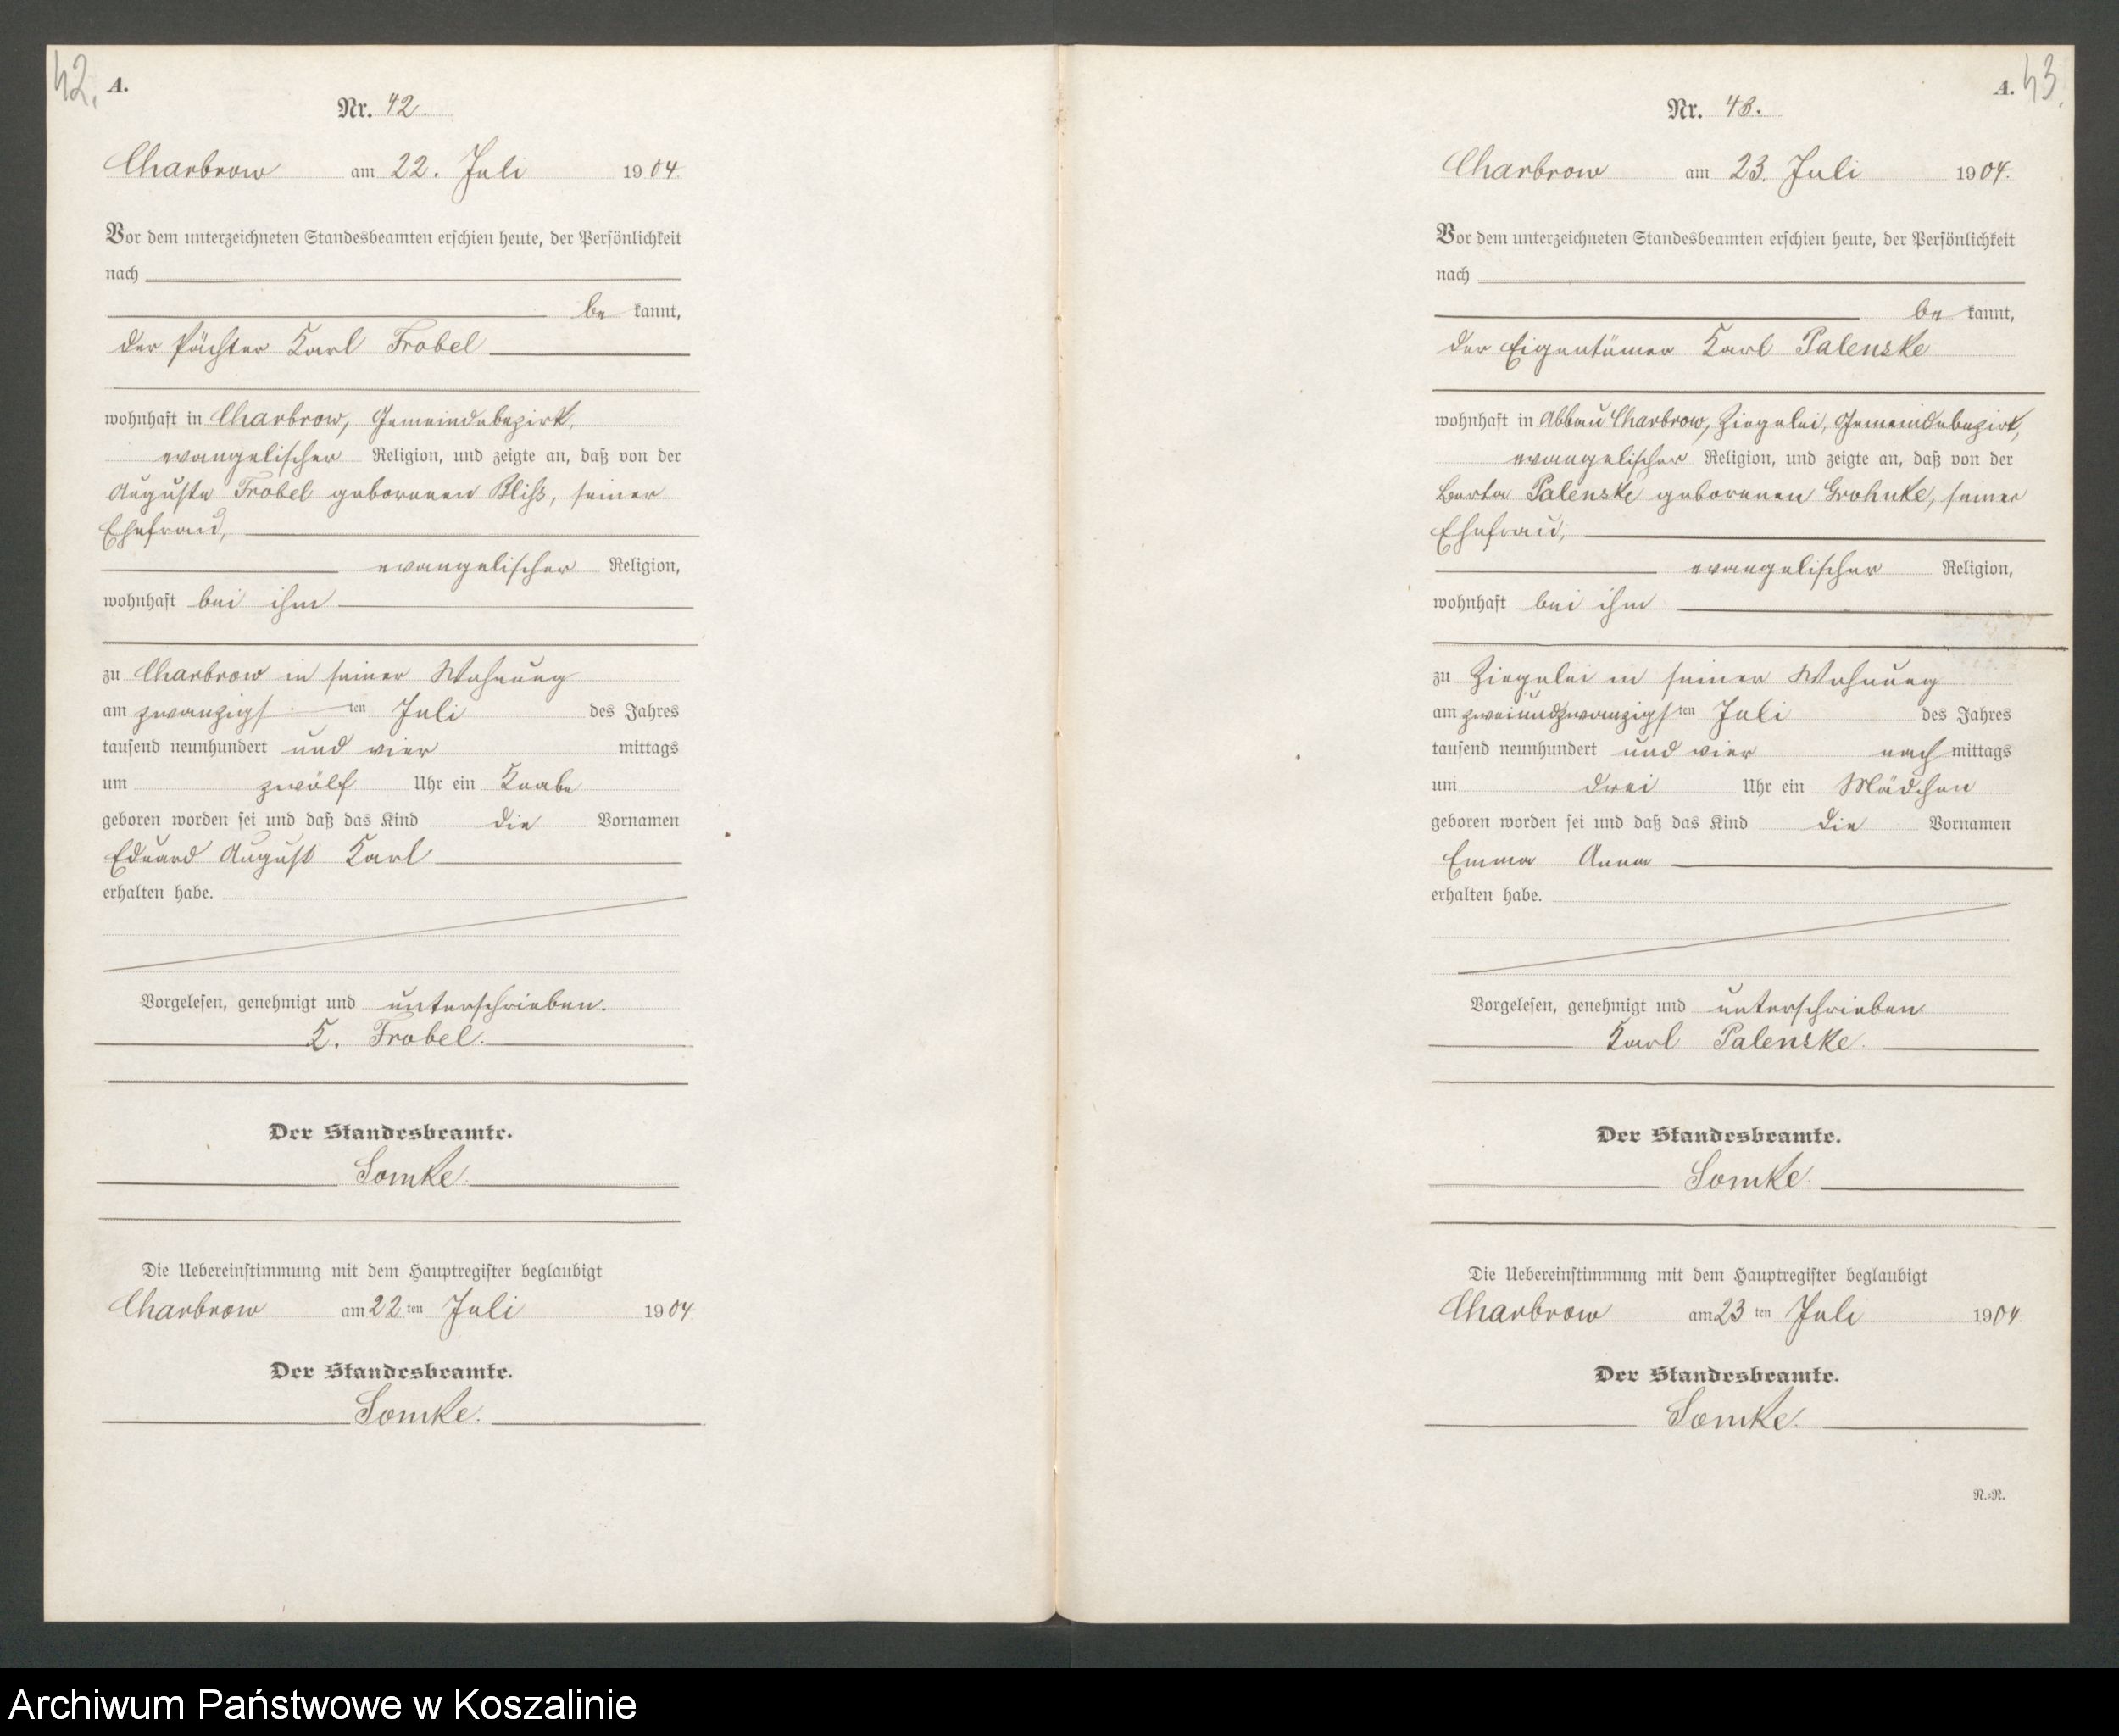 42.
A.
Nr. 42.
Charbrow am 22. Juli 1904.
Vor dem unterzeichneten Standesbeamten erschien heute, der Persönlichkeit
nach
be kannt,
der Pächter Karl Trobel
wohnhaft in Charbrow, Gemeindebezirk,
evangelischer Religion, und zeigte an, daß von der
Auguste Trobel geborenen Bliß, seiner
Ehefrau,
evangelischer Religion,
wohnhaft bei ihm
zu Charbrow in seiner Wohnung
am zwanzigsten Juli des Jahres
tausend neunhundert und vier mittags
um zwölf Uhr ein Knabe
geboren worden sei und daß das Kind die Vornamen
Eduard August Karl
erhalten habe.
Vorgelesen, genehmigt und unterschrieben.
K. Trobel.
Der Standesbeamte.
Somke.
Die Uebereinstimmung mit dem Hauptregister beglaubigt
Charbrow am 22ten Juli 1904.
Der Standesbeamte.
Somke.
A. 43.
Nr. 43.
Charbrow am 23. Juli 1904.
Vor dem unterzeichneten Standesbeamten erschien heute, der Persönlichkeit
nach
be kannt,
der Eigentümer Karl Palenske
wohnhaft in Abbau Charbrow, Ziegelei, Gemeindebezirk,
evangelischer Religion, und zeigte an, daß von der
Berta Palenske geborenen Grohnke, seiner
Ehefrau,
evangelischer Religion,
wohnhaft bei ihm
zu Ziegelei in seiner Wohnung
am zweiundzwanzigsten Juli des Jahres
tausend neunhundert und vier nach mittags
um drei Uhr ein Mädchen
geboren worden sei und daß das Kind die Vornamen
Emma Anna
erhalten habe.
Vorgelesen, genehmigt und unterschrieben
Karl Palenske.
Der Standesbeamte.
Somke.
Die Uebereinstimmung mit dem Hauptregister beglaubigt
Charbrow am 23ten Juli 1904
Der Standesbeamte.
Somke.
R.=R.
Archiwum Państwowe w Koszalinie